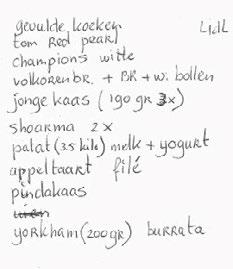 gevulde koeken LIDL
tom Red pearl
champions witte
volkorenbr. + BR + wi. bollen
jonge kaas (190 gr 3x)
shoarma 2 x
patat (3.5 kilo) melk + yogurt
appeltaart filé
pindakaas
yorkham (200 gr) burrata